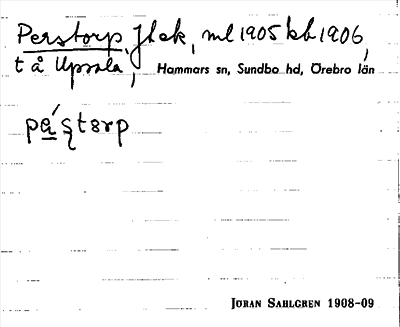 Perstorp, Jlek, ml 1905 kb 1906,
t å Upsala, Hammars sn, Sundbo hd, Örebro län
pȩ́stɛrp
JÖRAN SAHLGREN 1908-09